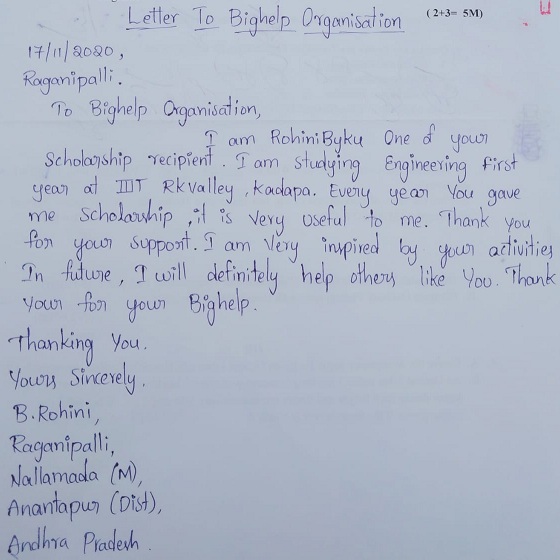 Letter To Bighelp Organisation (2+3= 5M)
17/11/2020,
Raganipalli.
To Bighelp Organisation,
I am Rohini Byku One of your
Scholarship recipient. I am studying Engineering first
year at IIIT Rkvalley, Kadapa. Every year You gave
me Scholarship, it is very useful to me. Thank you
for your support. I am Very inspired by your activities
In future, I will definitely help others like You. Thank
your for your Bighelp.
Thanking You.
Yours Sincerely.
B.Rohini,
Raganipalli,
Nallamada (M),
Anantapur (Dist),
Andhra Pradesh.